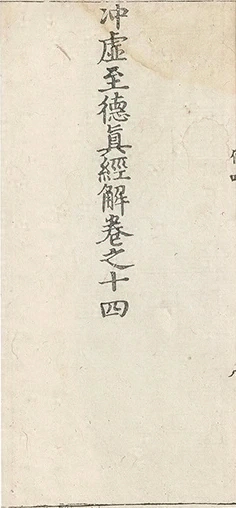 沖虛至德眞經解卷之十四